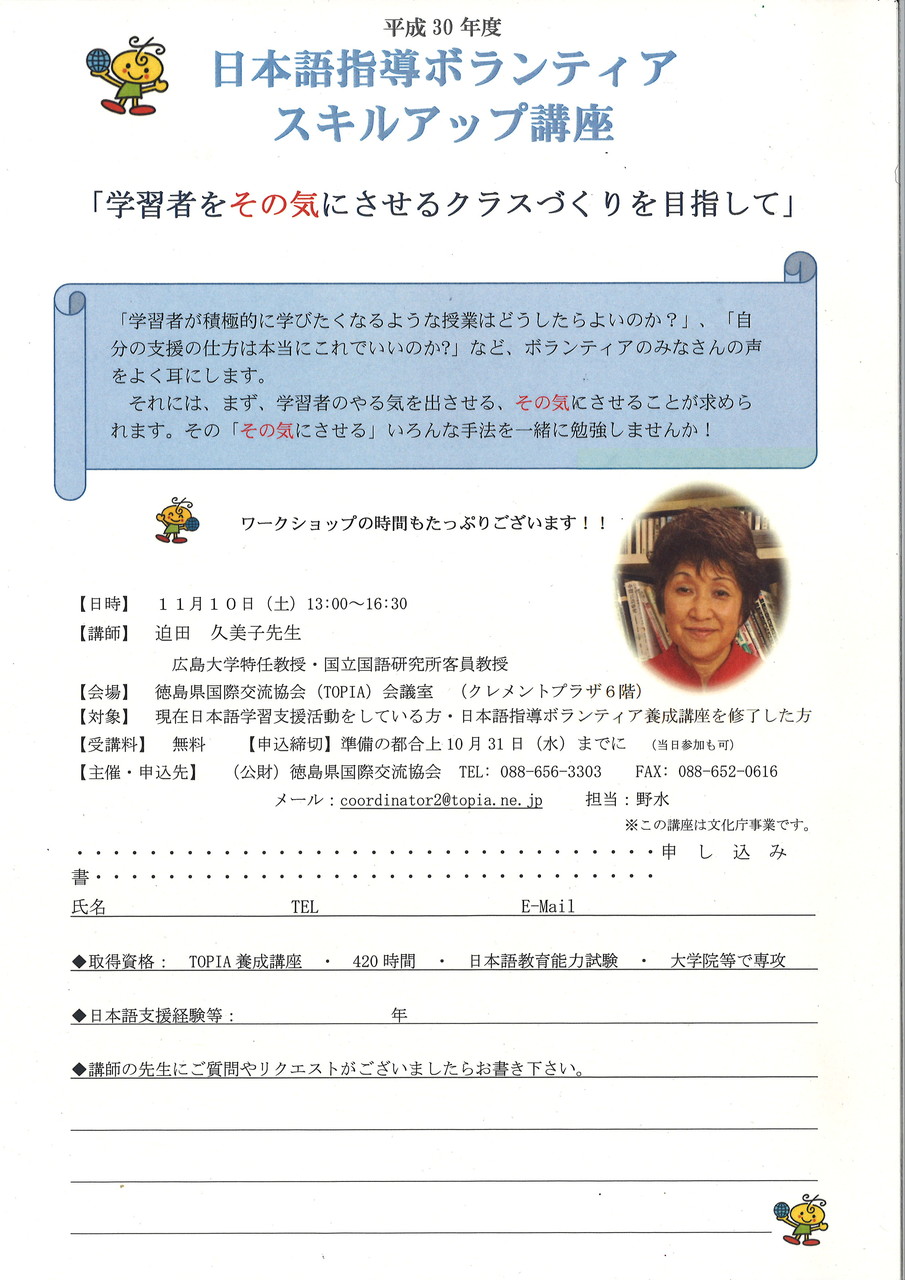 平成 30 年度
日本語指導ボランティア
スキルアップ講座
「学習者をその気にさせるクラスづくりを目指して」
「学習者が積極的に学びたくなるような授業はどうしたらよいのか？」、「自
分の支援の仕方は本当にこれでいいのか?」など、ボランティアのみなさんの声
をよく耳にします。
それには、まず、学習者のやる気を出させる、その気にさせることが求めら
れます。その「その気にさせる」いろんな手法を一緒に勉強しませんか！
ワークショップの時間もたっぷりございます！！
【日時】 １１月１０日（土）13:00～16:30
【講師】 迫田 久美子先生
広島大学特任教授・国立国語研究所客員教授
【会場】 徳島県国際交流協会（TOPIA）会議室 （クレメントプラザ６階）
【対象】 現在日本語学習支援活動をしている方・日本語指導ボランティア養成講座を修了した方
【受講料】 無料 【申込締切】準備の都合上 10 月 31 日（水）までに （当日参加も可）
【主催・申込先】 （公財）徳島県国際交流協会 TEL: 088-656-3303 FAX: 088-652-0616
メール：coordinator2@topia.ne.jp 担当：野水
※この講座は文化庁事業です。
・・・・・・・・・・・・・・・・・・・・・・・・・・・・・・・・申 し 込 み
書・・・・・・・・・・・・・・・・・・・・・・・・・・・・・・・
氏名 TEL E-Mail
◆取得資格： TOPIA 養成講座 ・ 420 時間 ・ 日本語教育能力試験 ・ 大学院等で専攻
◆日本語支援経験等： 年
◆講師の先生にご質問やリクエストがございましたらお書き下さい。